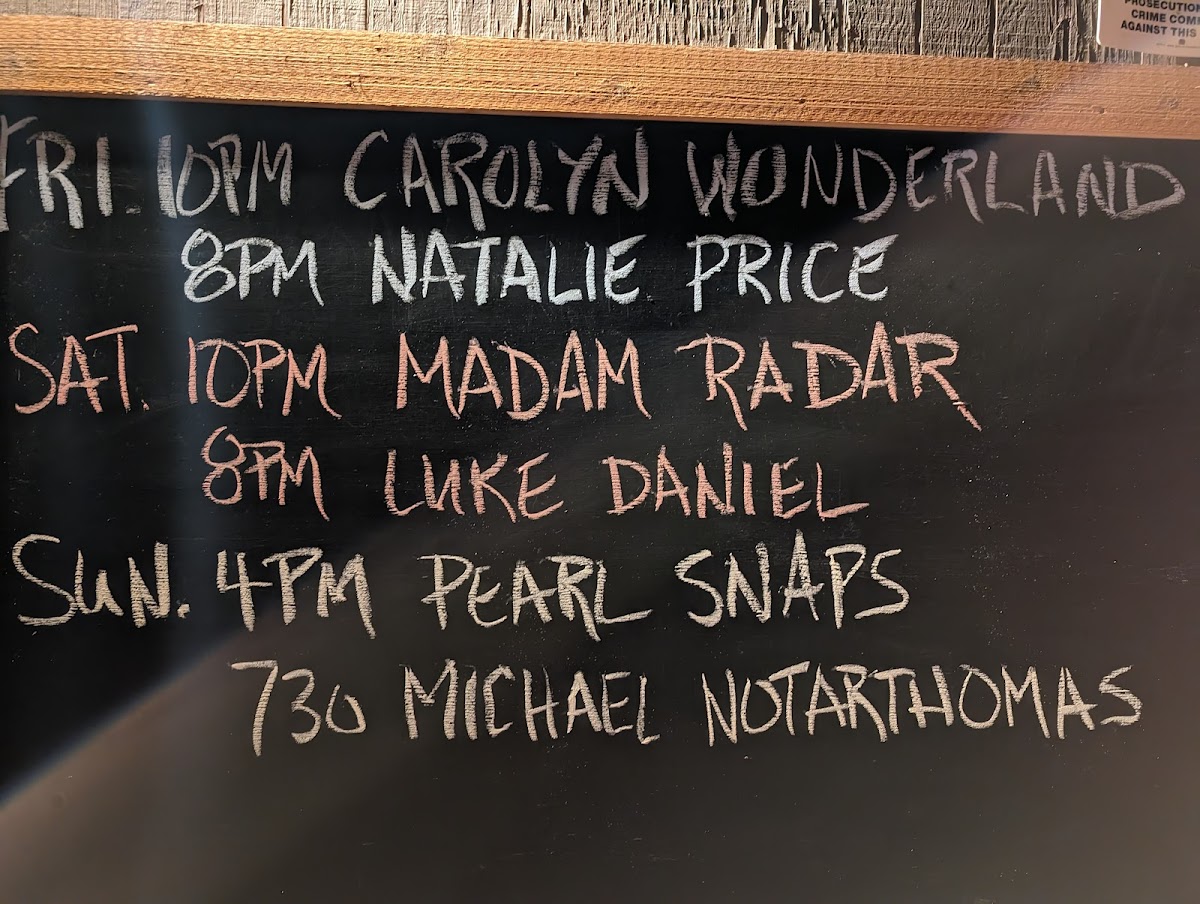 PROSECUTION
CRIME COM
AGAINST THIS
FRI. 10PM CAROLYN WONDERLAND
8PM NATALIE PRICE
SAT. 10PM MADAM RADAR
8PM LUKE DANIEL
SUN. 4PM PEARL SNAPS
730 MICHAEL NOTARTHOMAS